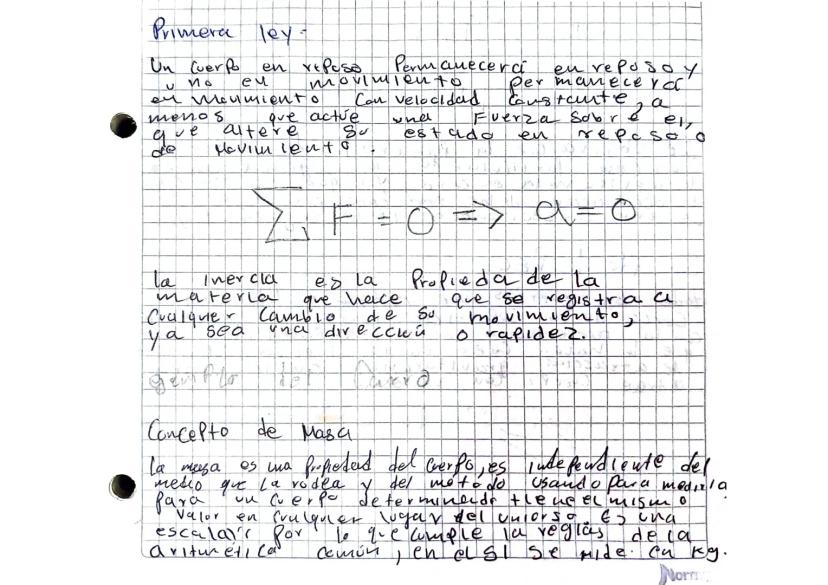 Primera ley.
Un Cuerpo en reposo Permanecerá en reposo y
uno en movimiento permanecerá
en movimiento Con velocidad Constante, a
menos que actúe una Fuerza Sobre el,
que altere Su estado en reposo o
de Movimiento.
∑ F = 0 => a = 0
La inercia es la Propieda de la
materia que hace que se registra a
Cualquier Cambio de Su movimiento,
ya sea una dirección o rapidez.
ejemplo del Carro
Concepto de Masa
La masa es una Propiedad del Cuerpo, es independiente del
medio que La rodea y del metodo usando para medirla
para un Cuerpo determinado tiene el mismo
Valor en Cualquier lugar del universo. Es una
escalar por lo que cumple la reglas de la
aritmética común, en el SI se mide en Kg.
Norma